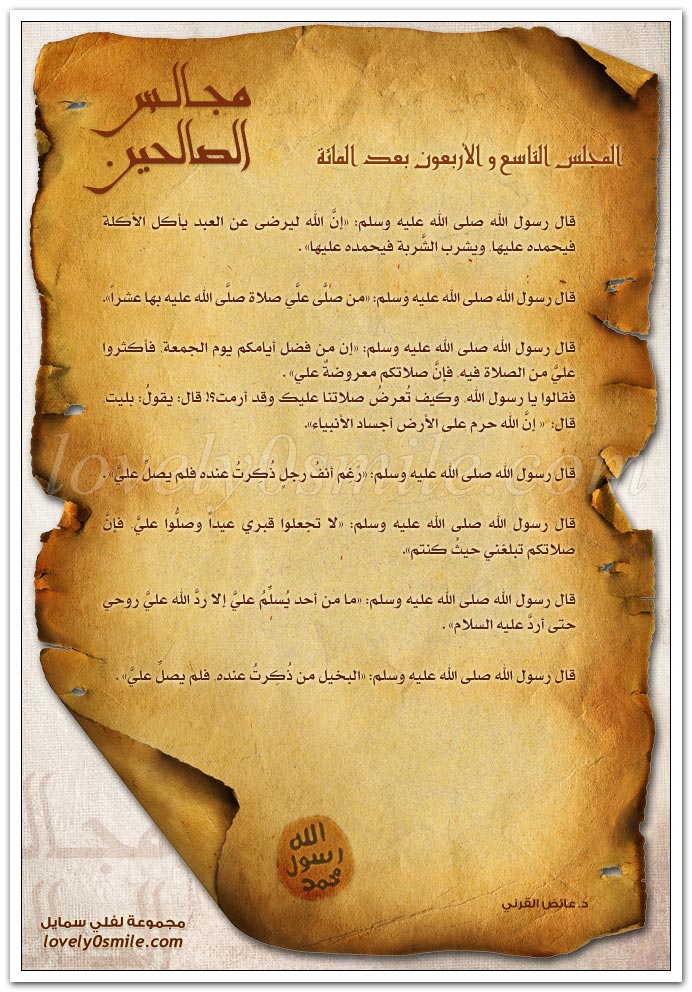 مجالس
الصالحين
المجلس التاسع و الأربعون بعد المائة
قال رسول الله صلى الله عليه وسلم: «إنَّ الله ليرضى عن العبد يأكل الأكلة
فيحمده عليها، ويشرب الشَّربة فيحمده عليها» .
قال رسول الله صلى الله عليه وسلم: «من صلَّى علَّي صلاة صلَّى الله عليه بها عشراً».
قال رسول الله صلى الله عليه وسلم: «إن من فضل أيامكم يوم الجمعة، فأكثروا
عليَّ من الصلاة فيه، فإنَّ صلاتكم معروضةٌ علي» .
فقالوا يا رسول الله، وكيف تُعرضُ صلاتنا عليك وقد أرمت؟! قال: يقولُ: بليت،
قال: « إنَّ الله حرم على الأرض أجساد الأنبياء».
قال رسول الله صلى الله عليه وسلم: «رَغِم أنفُ رجلٍ ذُكرتُ عنده فلم يصلِّ عليَّ» .
قال رسول الله صلى الله عليه وسلم: «لا تجعلوا قبري عيداً وصلُّوا عليَّ، فإنَّ
صلاتكم تبلغني حيثُ كنتم».
قال رسول الله صلى الله عليه وسلم: «ما من أحد يُسلِّمُ عليَّ إلا ردَّ الله عليَّ روحي
حتى أردَّ عليه السلام» .
قال رسول الله صلى الله عليه وسلم: «البخيل من ذُكِرتُ عنده، فلم يصلِّ عليَّ» .
lovely0smile.com
الله
رسول
محمد
د.عائض القرني
مجموعة لفلي سمايل
lovely0smile.com